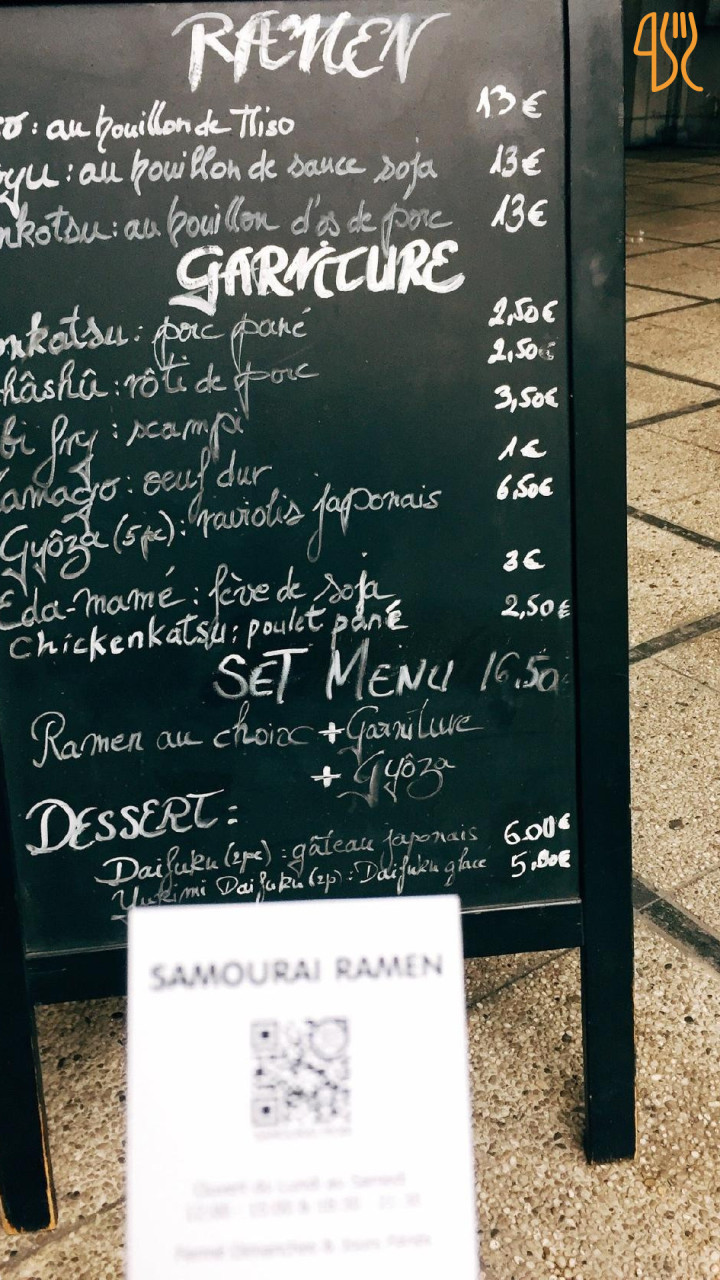 RAMEN
so: au bouillon de Miso 13€
oyu: au bouillon de sauce soja 13€
nkotsu: au bouillon d'os de porc 13€
GARNITURE
onkatsu: porc pané 2,50€
hâshû: rôti de porc 2,50€
bi fry: scampi 3,50€
amago: oeuf dur 1€
Gyôza (5pc): raviolis japonais 6,50€
Eda-mamé: fève de soja 3€
Chickenkatsu: poulet pané 2,50€
SET MENU 16,50
Ramen au choix + Garniture
+ Gyôza
DESSERT:
Daifuku (2pc): gâteau japonais 6.00€
Yukimi Daifuku (2p): Daifuku glace 5,00€
SAMOURAI RAMEN
Ouvert du Lundi au Samedi
Fermé Dimanches & Jours Fériés